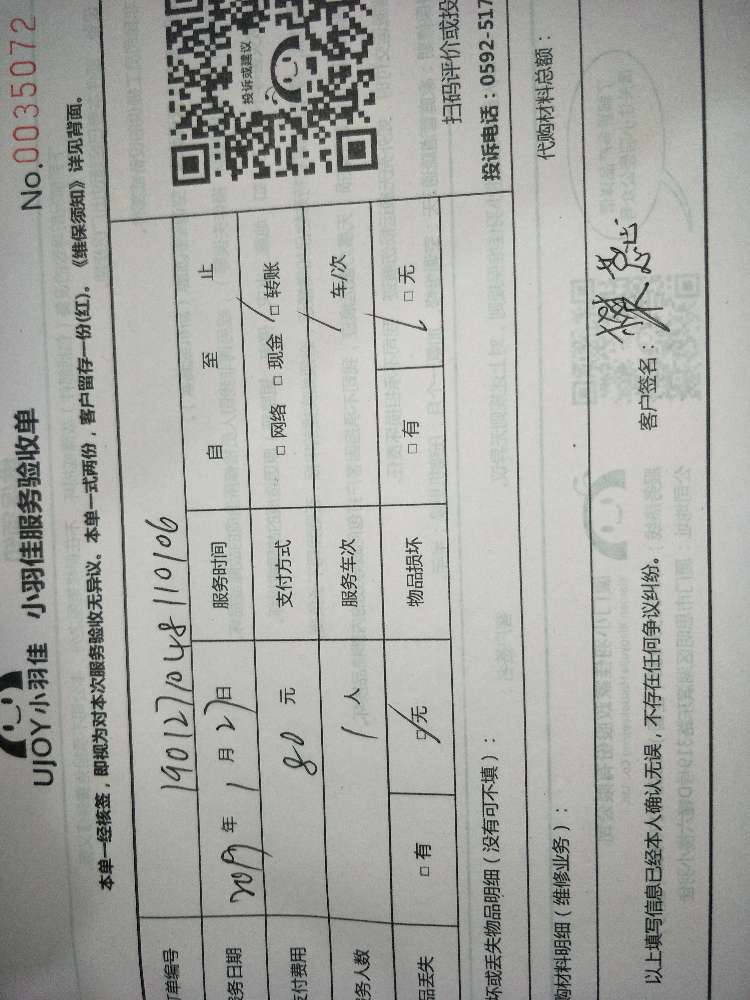 UJOY小羽佳 小羽佳服务验收单
No.0035072
本单一经核签，即视为对本次服务验收无异议。本单一式两份，客户留存一份(红)。《维保须知》详见背面。
单编号 1901271048110106
务日期 2019 年 1 月 27 日 服务时间 自 至 止
付费用 80 元 支付方式 □ 网络 □ 现金 □ 转账
务人数 1 人 服务车次 车/次
品丢失 □ 有 □ 无 物品损坏 □ 有 □ 无
投诉或建议
扫码评价或投
投诉电话：0592-517
坏或丢失物品明细（没有可不填）：
购材料明细（维修业务）： 代购材料总额：
以上填写信息已经本人确认无误，不存在任何争议纠纷。 客户签名：